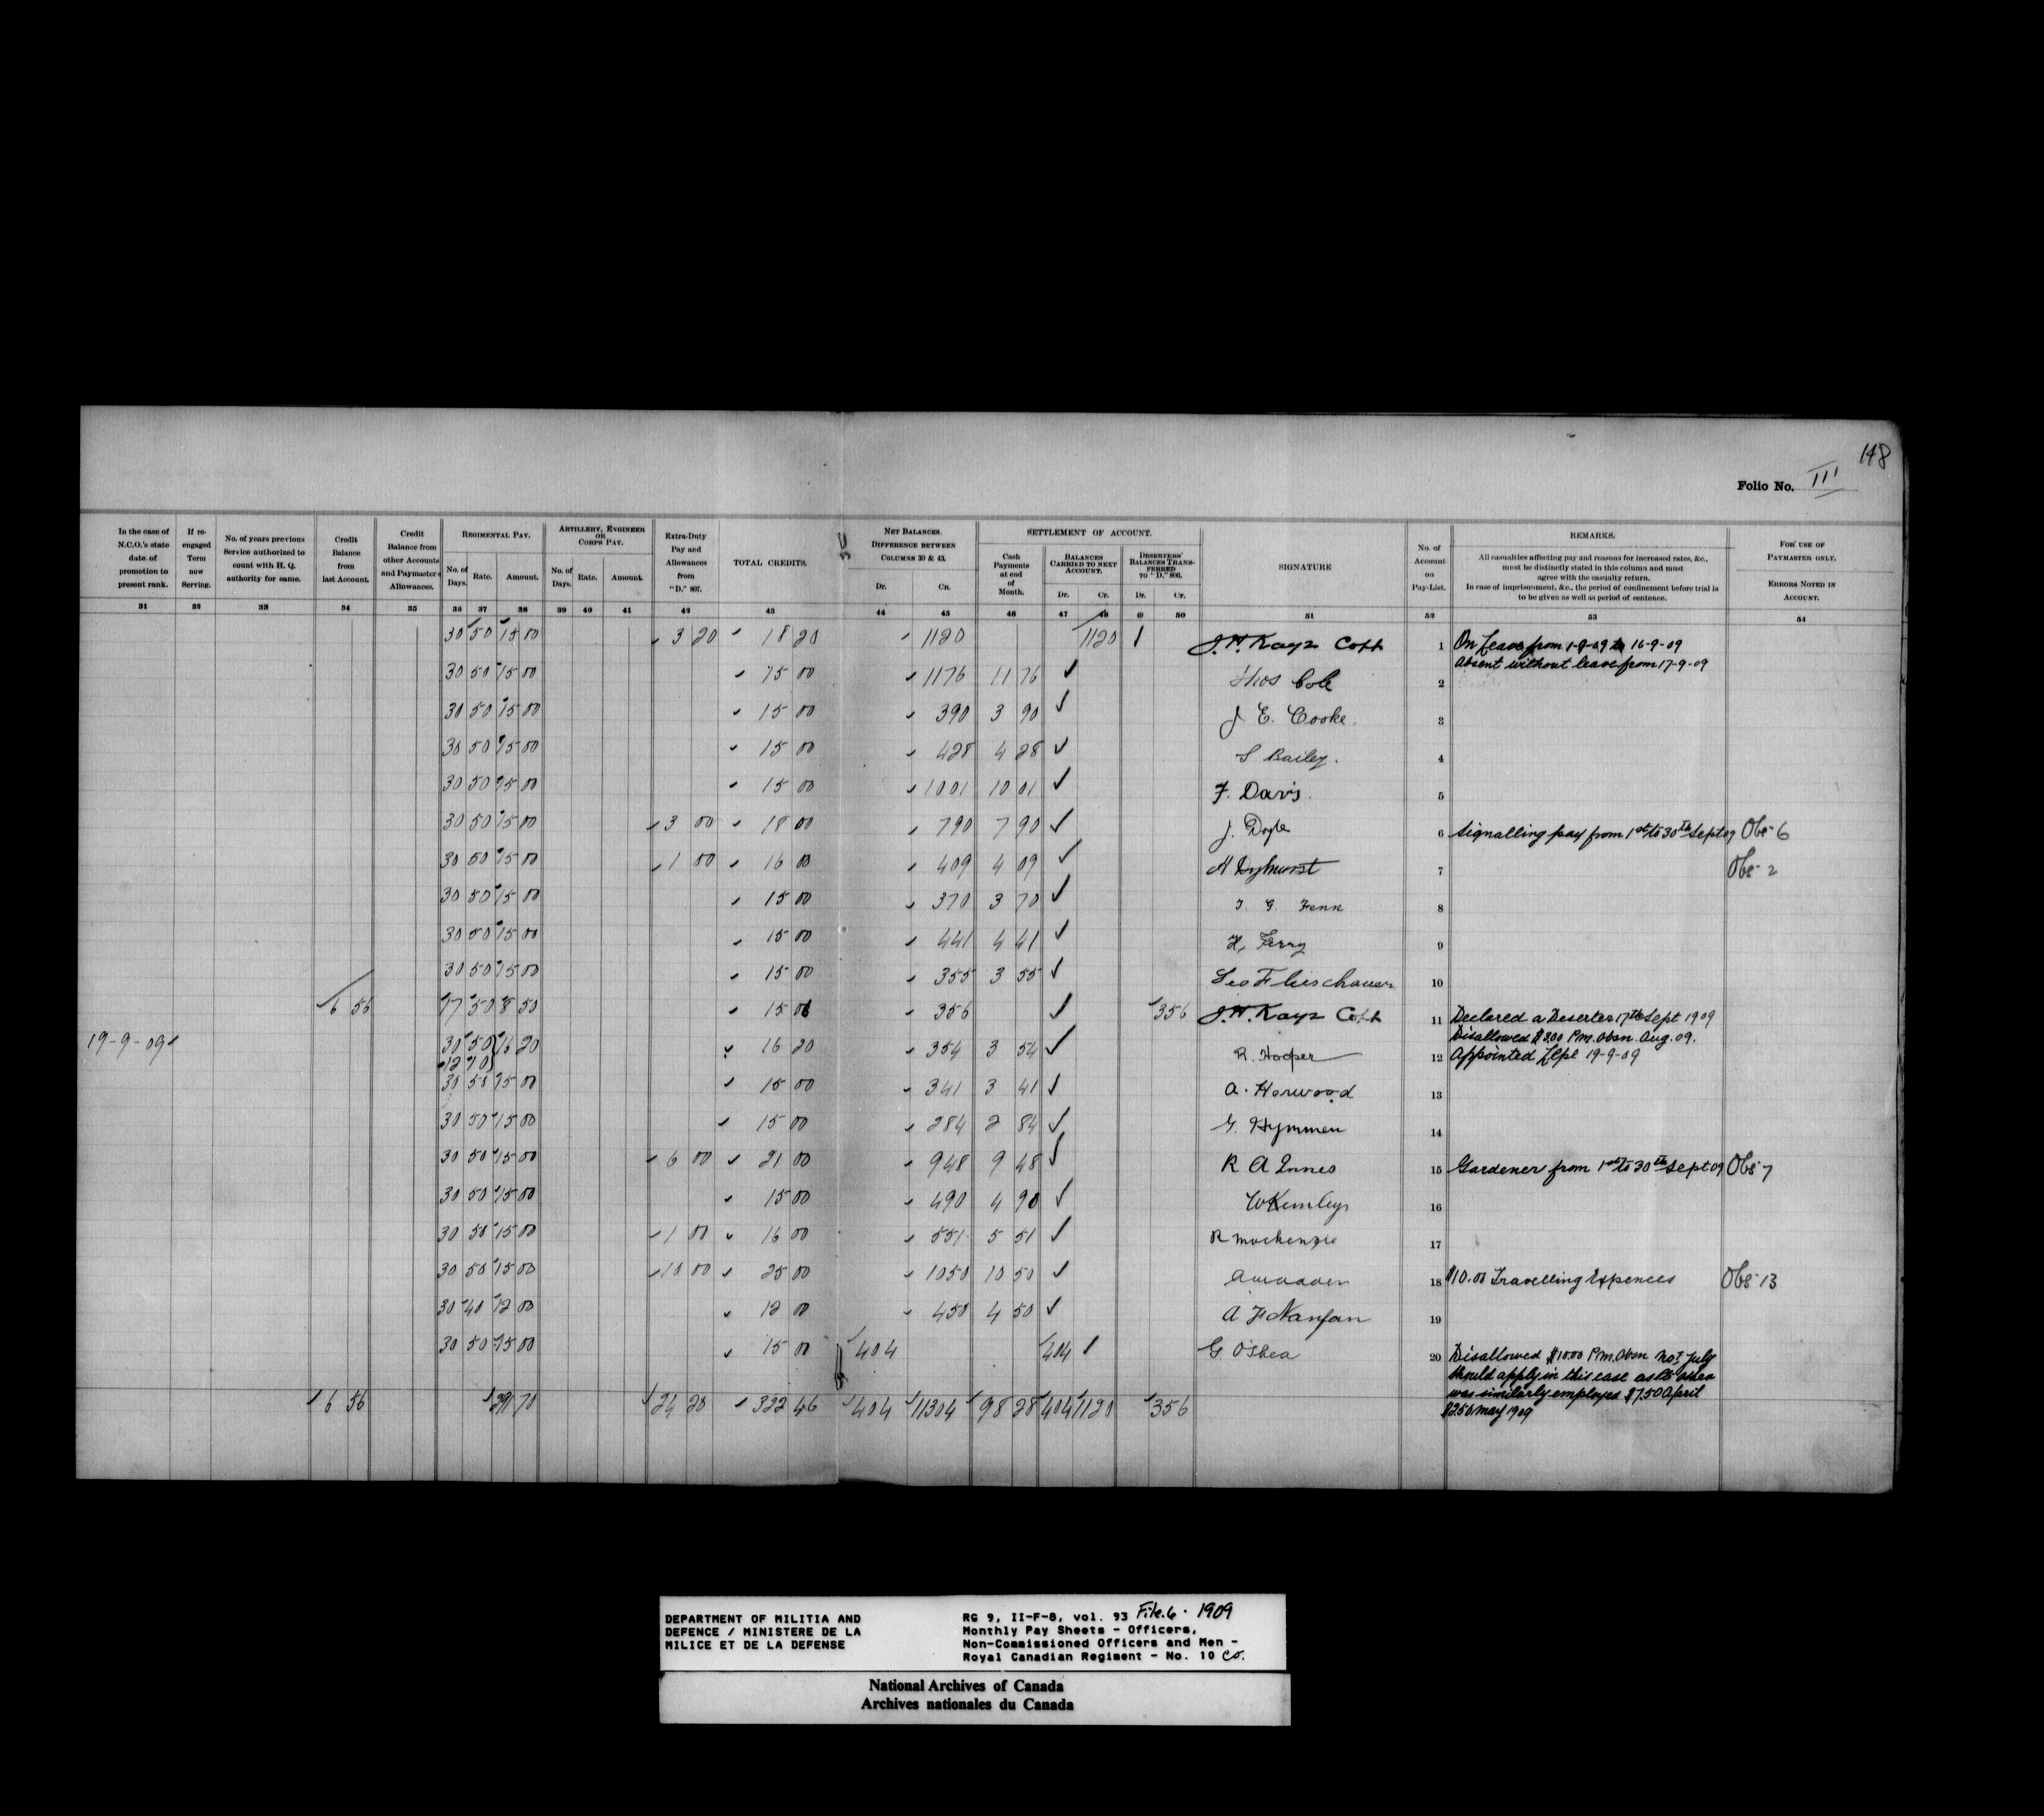 148
Folio No. III
In the case of N.C.O.'s state date of promotion to present rank.
If re-engaged Term now Serving.
No. of years previous Service authorized to count with H. Q. authority for same.
Credit Balance from last Account.
Credit Balance from other Accounts and Paymaster's Allowances.
REGIMENTAL PAY.
No. of Days. Rate. Amount.
ARTILLERY, ENGINEER OR CORPS PAY.
No. of Days. Rate. Amount.
Extra-Duty Pay and Allowances from "D." 807.
TOTAL CREDITS.
NET BALANCES.
DIFFERENCE BETWEEN COLUMNS 30 & 43.
Dr. Cr.
SETTLEMENT OF ACCOUNT.
Cash Payments at end of Month.
BALANCES CARRIED TO NEXT ACCOUNT.
Dr. Cr.
DESERTERS' BALANCES TRANSFERRED TO "D." 806.
Dr. Cr.
SIGNATURE
No. of Account on Pay-List.
REMARKS.
All casualties affecting pay and reasons for increased rates, &c.,
must be distinctly stated in this column and must
agree with the casualty return.
In case of imprisonment, &c., the period of confinement before trial is
to be given as well as period of sentence.
FOR USE OF PAYMASTER ONLY.
ERRORS NOTED IN ACCOUNT.
31 32 33 34 35 36 37 38 39 40 41 42 43 44 45 46 47 48 49 50 51 52 53 54
30 50 15 00 3 20 18 20 11 20 11 20 1 On Leave from 1-9-09 to 16-9-09
Absent without leave from 17-9-09
30 50 15 00 15 00 11 76 11 76 Thos Cole 2
30 50 15 00 15 00 3 90 3 90 J. E. Cooke 3
30 50 15 00 15 00 4 28 4 28 S Bailey. 4
30 50 15 00 15 00 10 01 10 01 F. Davis. 5
30 50 15 00 3 00 18 00 7 90 7 90 J. Doyle 6 Signalling pay from 1st to 30th Sept 09 Obs 6
30 50 15 00 1 00 16 00 4 09 4 09 7 Obs 2
30 50 15 00 15 00 3 70 3 70 T. G. Fenn 8
30 50 15 00 15 00 4 41 4 41 H, Ferry 9
30 50 15 00 15 00 3 55 3 55 Leo Flieschauer 10
6 56 17 50 8 50 15 06 3 56 3 56 11 Declared a Deserter 17th Sept 1909
Disallowed $3.00 P.m. Obsn. Aug. 09.
19-9-09 30 50 16 20 16 20 3 54 3 54 R. Hooper 12 Appointed 19-9-09
12 10
30 50 15 00 15 00 3 41 3 41 A. Horwood 13
30 50 15 00 15 00 2 84 2 84 G. Hymmen 14
30 50 15 00 6 00 21 00 9 48 9 48 R A Innes 15 Gardener from 1st to 30th Sept 09 Obs 7
30 50 15 00 15 00 4 90 4 90 W Kemleys 16
30 50 15 00 1 00 16 00 5 51 5 51 R Mackenzie 17
30 50 15 00 10 00 25 00 10 50 10 50 18 $10.00 Travelling Expences Obs 13
30 40 12 00 12 00 4 50 4 50 A F Nanfan 19
30 50 15 00 15 00 4 04 4 04 G. O'Shea 20 Disallowed $10.00 P.m. Obsn No 7 July
should apply in this case as
was similarly employed $7.50 April
$2.50 May 1909
6 56 291 70 24 20 322 46 4 04 113 04 98 28 4 04 11 20 3 56
DEPARTMENT OF MILITIA AND
DEFENCE / MINISTERE DE LA
MILICE ET DE LA DEFENSE
RG 9, II-F-8, vol. 93 File.6. 1909
Monthly Pay Sheets - Officers,
Non-Commissioned Officers and Men -
Royal Canadian Regiment - No. 10 Co.
National Archives of Canada
Archives nationales du Canada